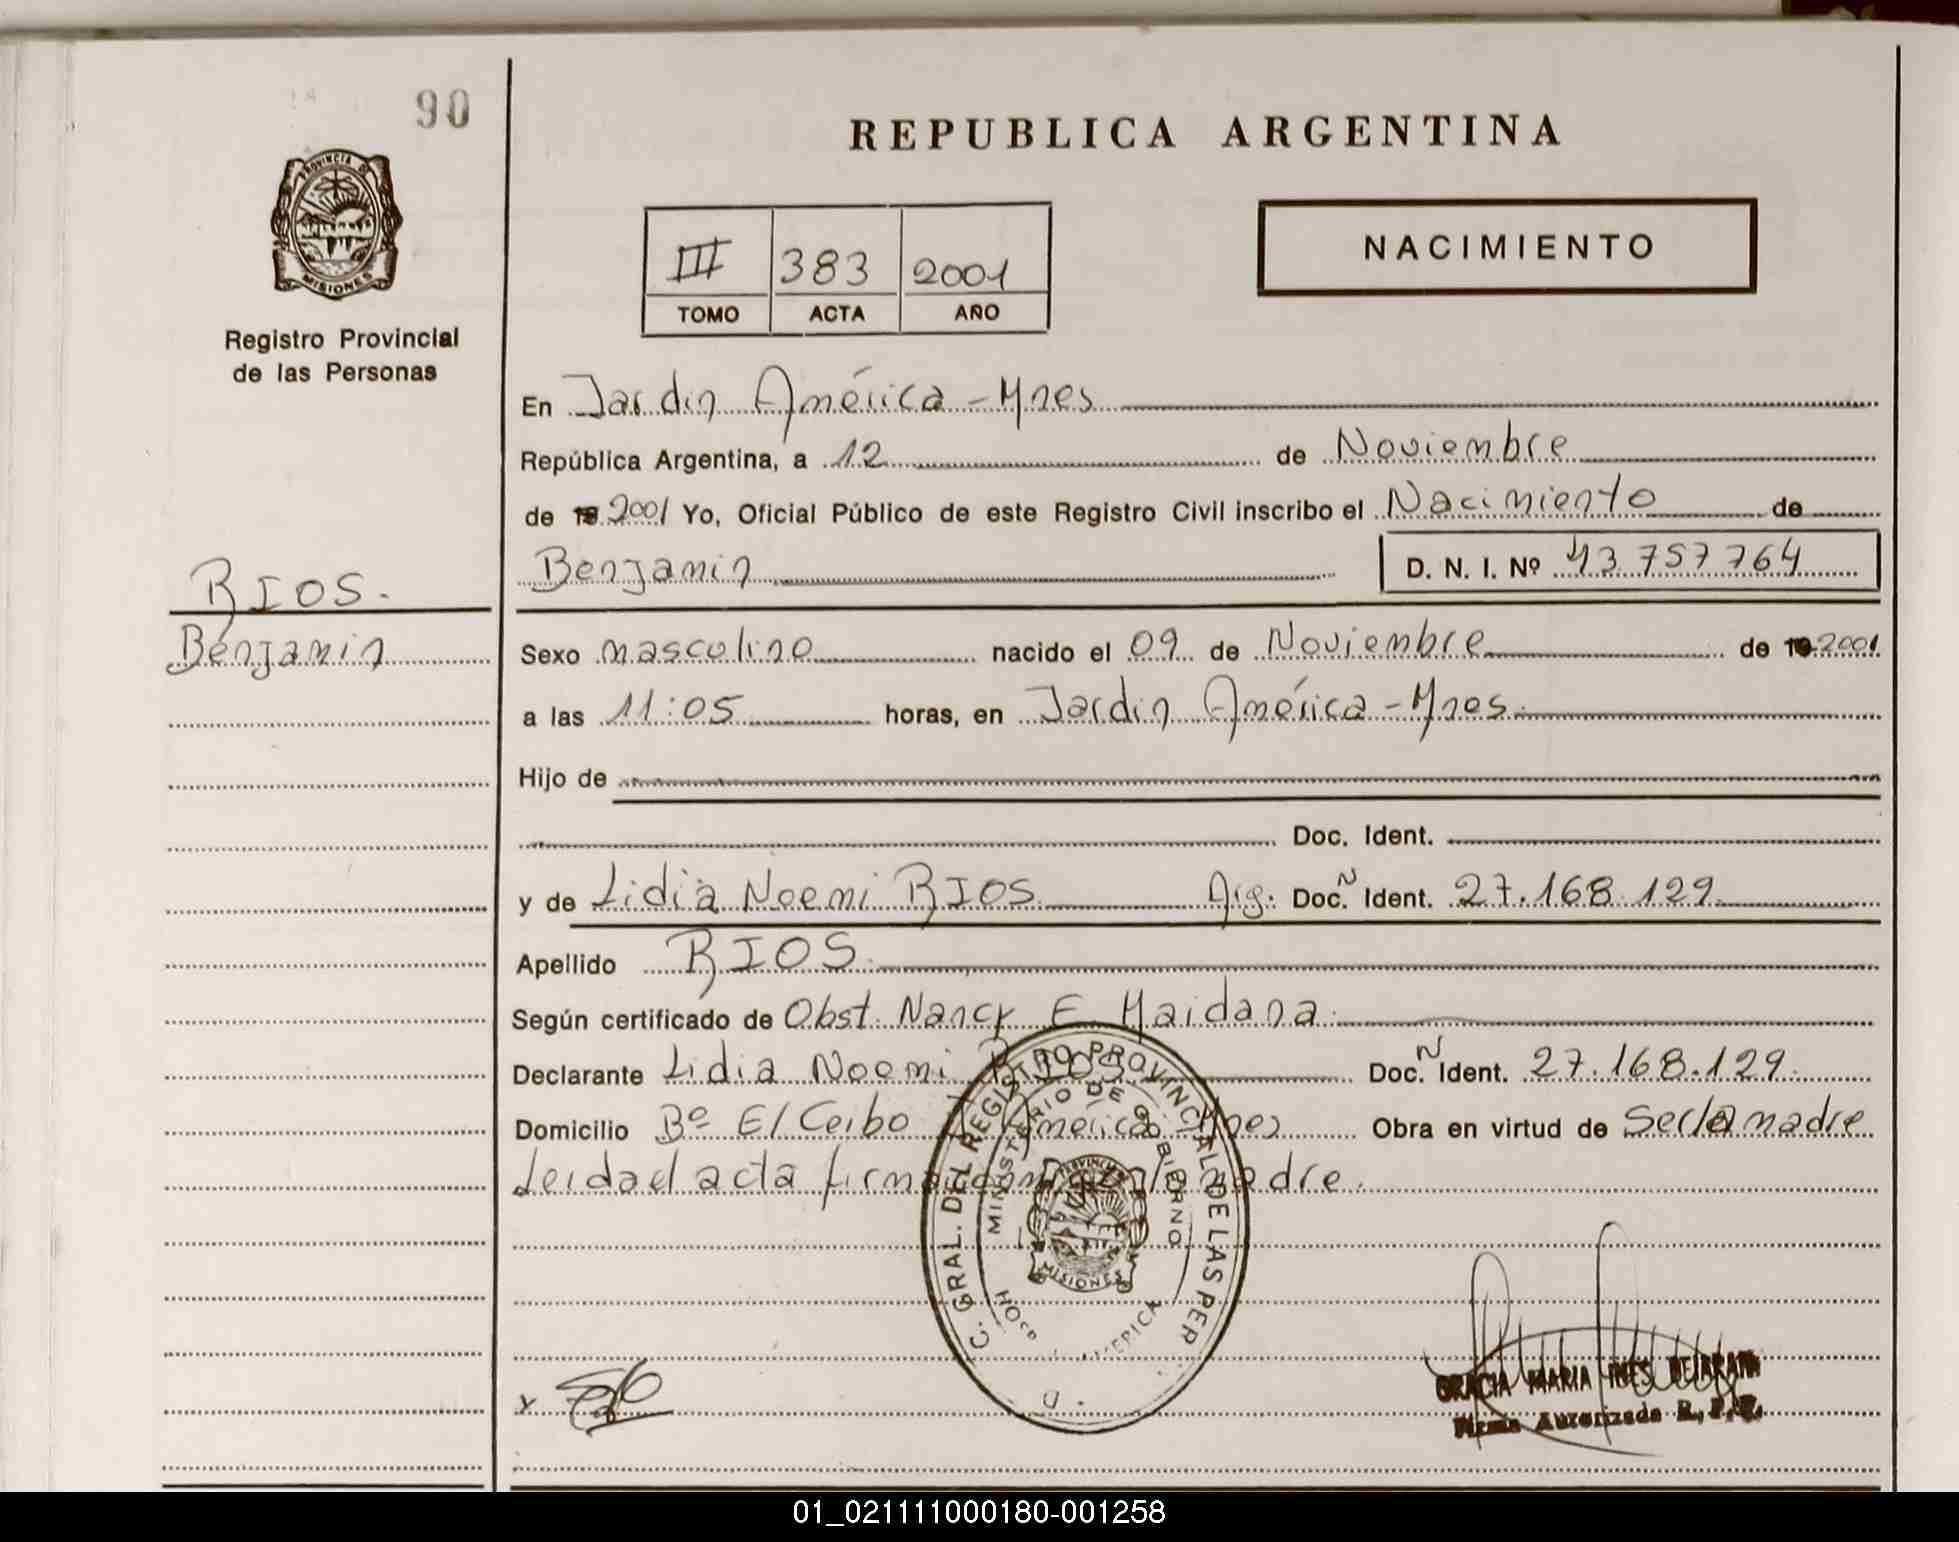 90
REPUBLICA ARGENTINA
PROVINCIA DE
MISIONES
Registro Provincial
de las Personas
III 383 2001
TOMO ACTA AÑO
NACIMIENTO
En Jardin América - Mnes
República Argentina, a 12 de Noviembre
de 19 2001 Yo, Oficial Público de este Registro Civil inscribo el Nacimiento de
Benjamin D. N. I. Nº 43.757764
RIOS.
Benjamin
Sexo masculino nacido el 09 de Noviembre de 19 2001
a las 11:05 horas, en Jardin América - Mnes.
Hijo de
Doc. Ident.
y de Lidia Noemi RIOS Arg. Doc. N Ident. 27.168.129
Apellido RIOS.
Según certificado de Obst. Nancy E. Maidana.
Declarante Lidia Noemi RIOS Doc. N Ident. 27.168.129.
Domicilio Bº El Ceibo J. América Mnes Obra en virtud de Ser la madre
Leida el acta firma conmigo la madre.
C. GRAL. DEL REGISTRO PROVINCIAL DE LAS PER
MINISTERIO DE GOBIERNO
PROVINCIA
MISIONES
AMERICA
GRACIA MARIA INES
Firma Autorizada R.P.P.
01_021111000180-001258